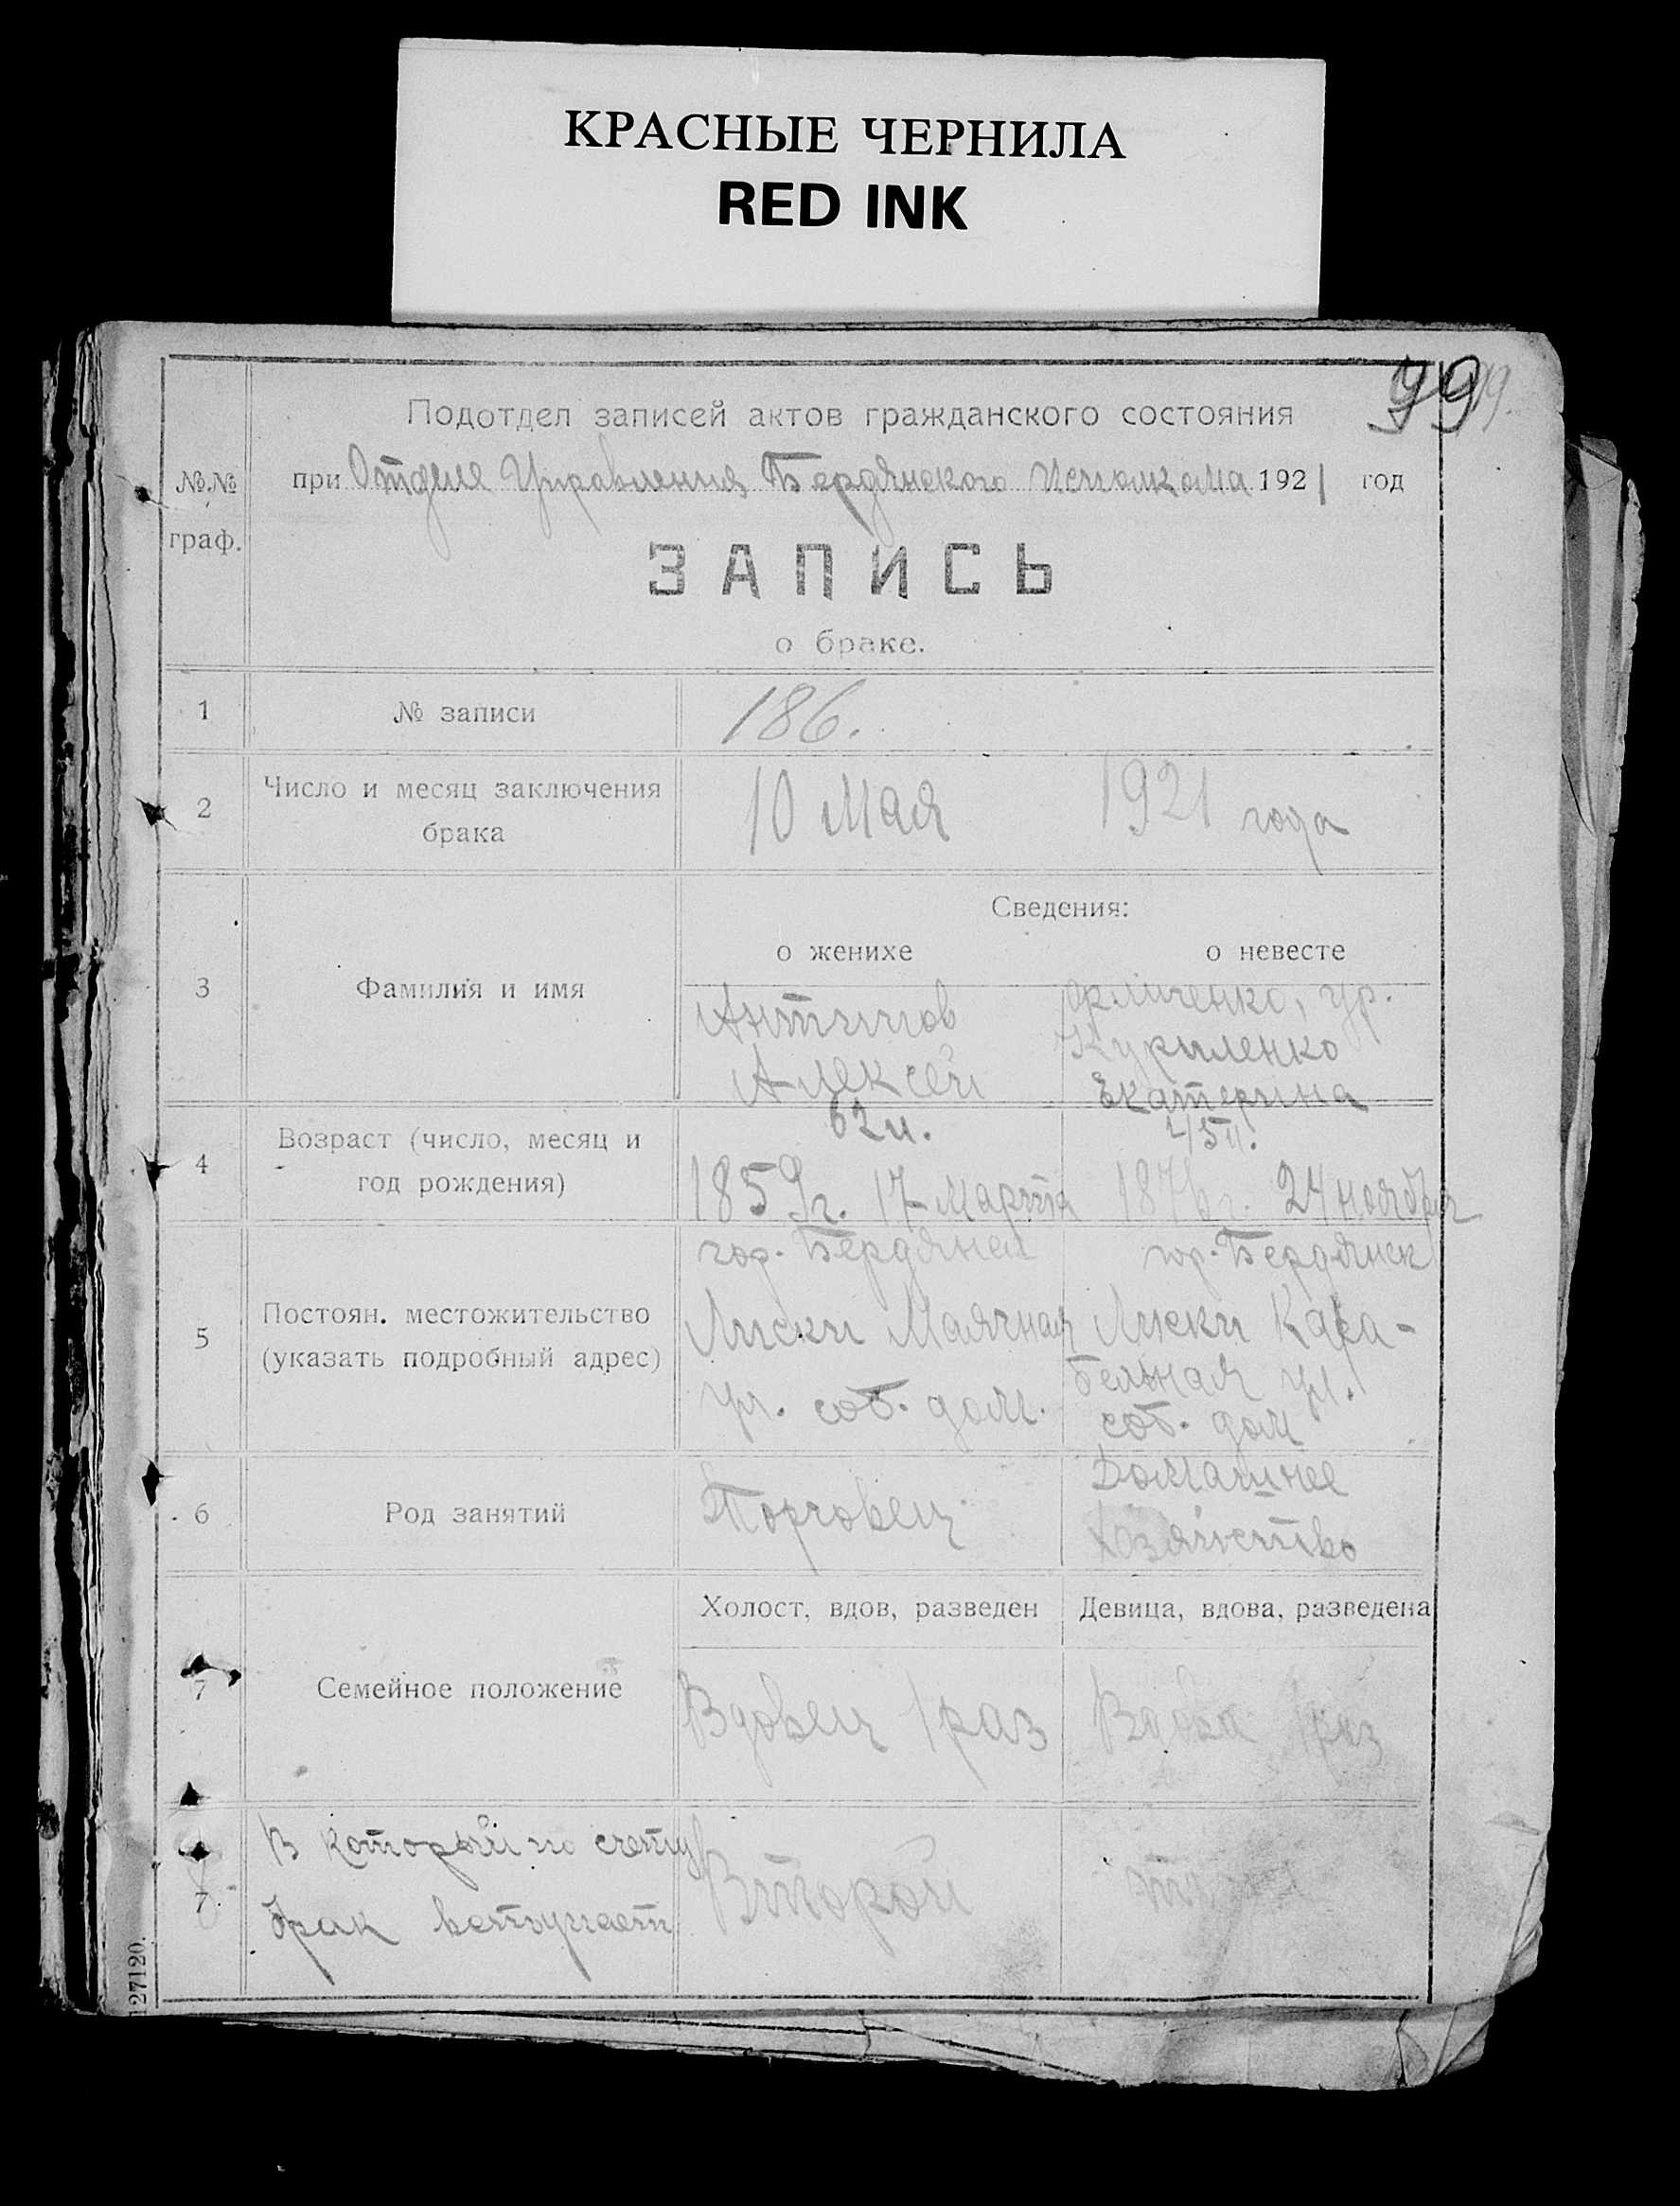 КРАСНЫЕ ЧЕРНИЛА
RED INK
99
Подотдел записей актов гражданского состояния
№№ при Отделе Управления Бердянского Исполкома 1921 год
граф.
ЗАПИСЬ
о браке.
1 № записи 186.
2 Число и месяц заключения брака 10 Мая 1921 года
Сведения:
о женихе о невесте
3 Фамилия и имя
Антипов
Алексей
ур.
Куриленко
Екатерина
4 Возраст (число, месяц и
год рождения)
62 л.
1859 г. 17 Марта
45 л.
1876 г. 24 ноября
5 Постоян. местожительство
(указать подробный адрес)
гор. Бердянск
Лиски Маячная
ул. соб. дом.
гор. Бердянск
Лиски Кара-
бельная ул.
соб. дом
6 Род занятий
Торговец
Домашнее
хозяйство
Холост, вдов, разведен Девица, вдова, разведена
7 Семейное положение Вдовец 1 раз Вдова 1 раз
7. В который по счету
брак вступает
Второй
27120.